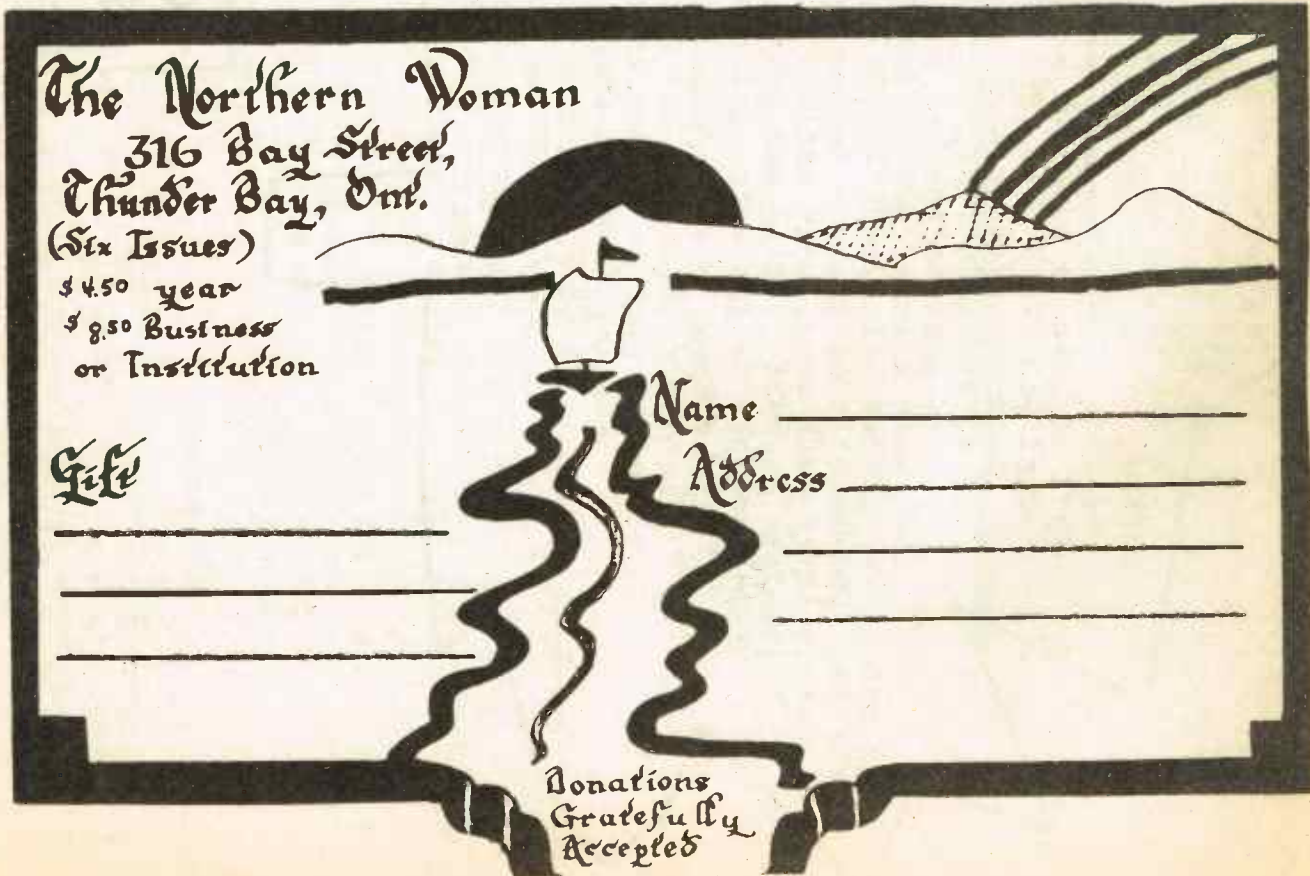 The Northern Woman
316 Bay Street,
Thunder Bay, Ont.
(Six Issues)
$4.50 year
$8.50 Business
or Institution
Gift
Name
Address
Donations
Gratefully
Accepted